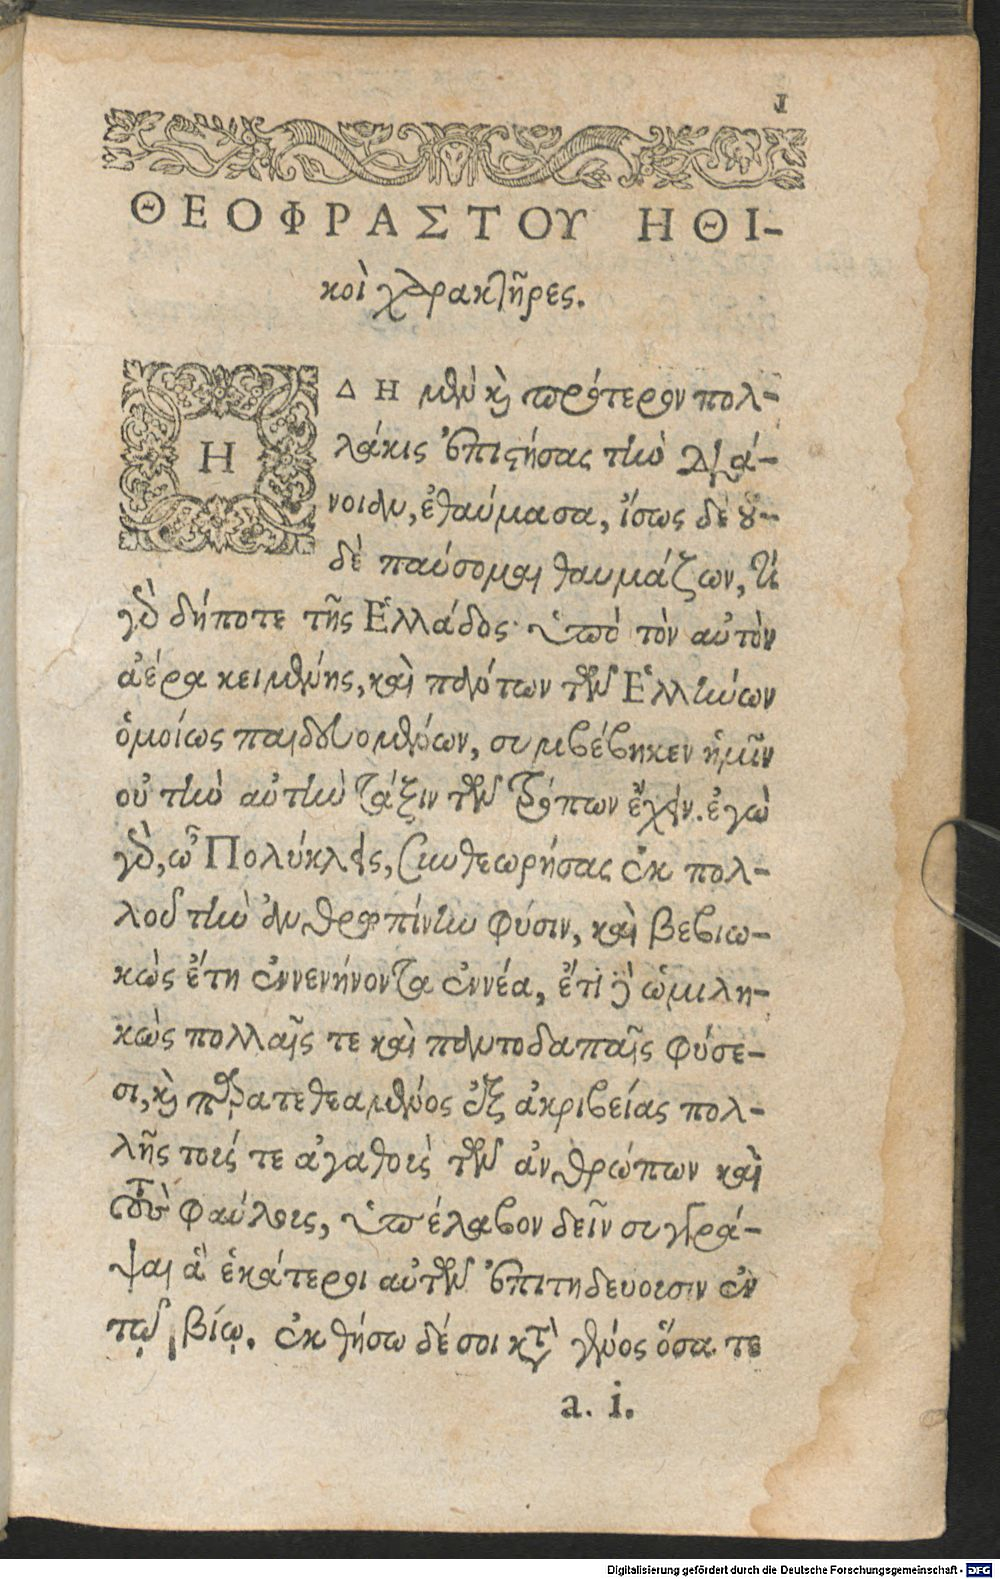 1
ΘΕΟΦΡΑΣΤΟΥ ΗΘΙ-
κοὶ χαρακτῆρες.
ΗΔΗ μὲν καὶ πρότερον πολ-
λάκις ἐπιστήσας τὴν διά-
νοιαν, ἐθαύμασα, ἴσως δὲ οὐ-
δὲ παύσομαι θαυμάζων, τί
γὰρ δήποτε τῆς Ἑλλάδος ὑπὸ τὸν αὐτὸν
ἀέρα κειμένης, καὶ πάντων τῶν Ἑλλήνων
ὁμοίως παιδευομένων, συμβέβηκεν ἡμῖν
οὐ τὴν αὐτὴν τάξιν τῶν τρόπων ἔχειν. ἐγὼ
γὰρ, ὦ Πολύκλεις, συνθεωρήσας ἐκ πολ-
λοῦ τὴν ἀνθρωπίνην φύσιν, καὶ βεβιω-
κὼς ἔτη ἐννενήνοντα ἐννέα, ἔτι δὲ ὡμιλη-
κὼς πολλαῖς τε καὶ παντοδαπαῖς φύσε-
σι, καὶ παρατεθεαμένος ἐξ ἀκριβείας πολ-
λῆς τούς τε ἀγαθοὺς τῶν ἀνθρώπων καὶ
τοὺς φαύλους, ὑπέλαβον δεῖν συγγρά-
ψαι ἃ ἑκάτεροι αὐτῶν ἐπιτηδεύουσιν ἐν
τῷ βίῳ. ἐκθήσω δέ σοι κατὰ γένος ὅσα τε
a. i.
Digitalisierung gefördert durch die Deutsche Forschungsgemeinschaft - DFG